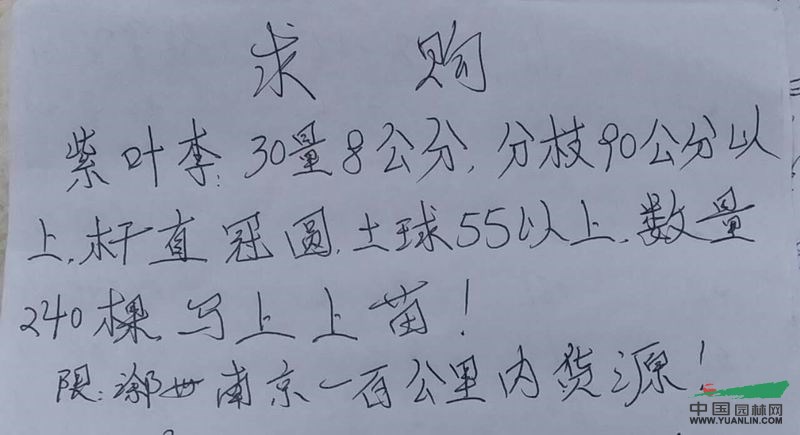 求 购
紫叶李:30量8公分,分枝90公分以
上,杆直冠圆,土球55以上,数量
240棵,写上上苗!
限:滁州南京一百公里内货源!
中国园林网
WWW.YUANLIN.COM